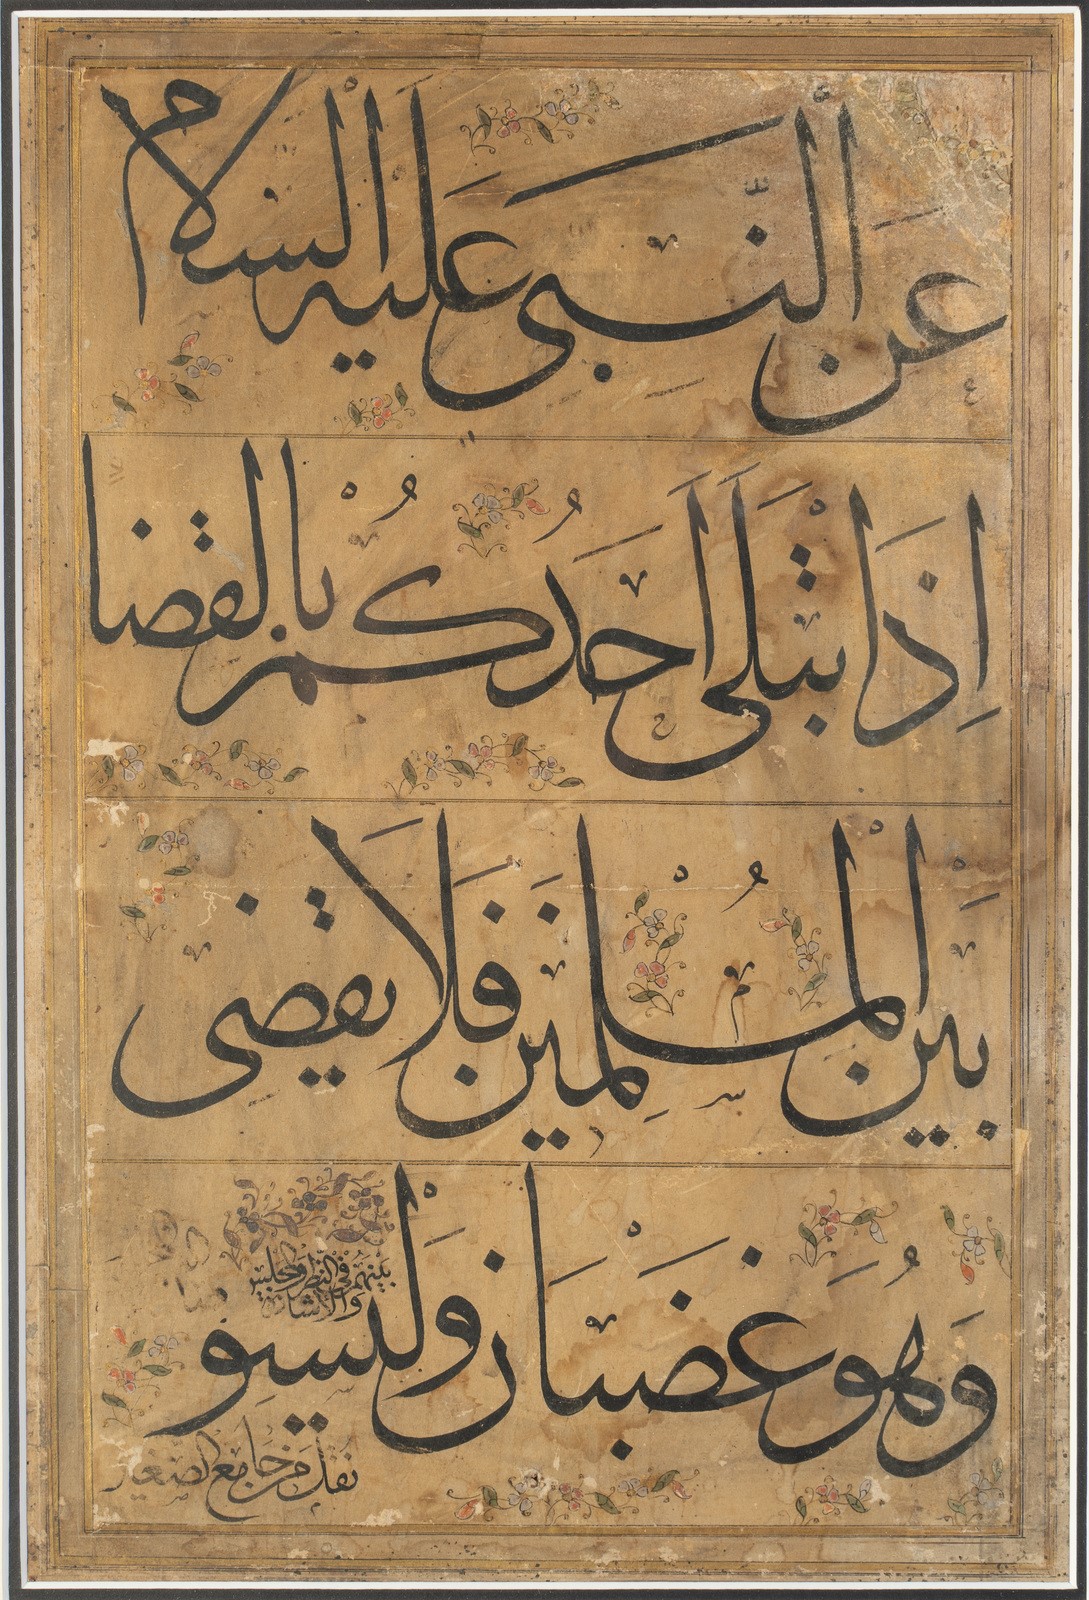 عَنِ ٱلنَّبِىِّ عَلَيْهِ ٱلسَّلَام
اِذَا بْتَلَى اَحَدُكُمْ بِالقضا
بَيْنَ الْمُسْلِمِينَ فَلَا يَقضى
وَهُوَ غَضْبَانٌ وَلْيُسَوِّ
بَيْنَهُمْ فِى النَّظَرِ وَالْمَجْلِسِ
وَالْاِشَارَةِ
نُقِلَ مِنْ جَامِعِ الصَّغِير